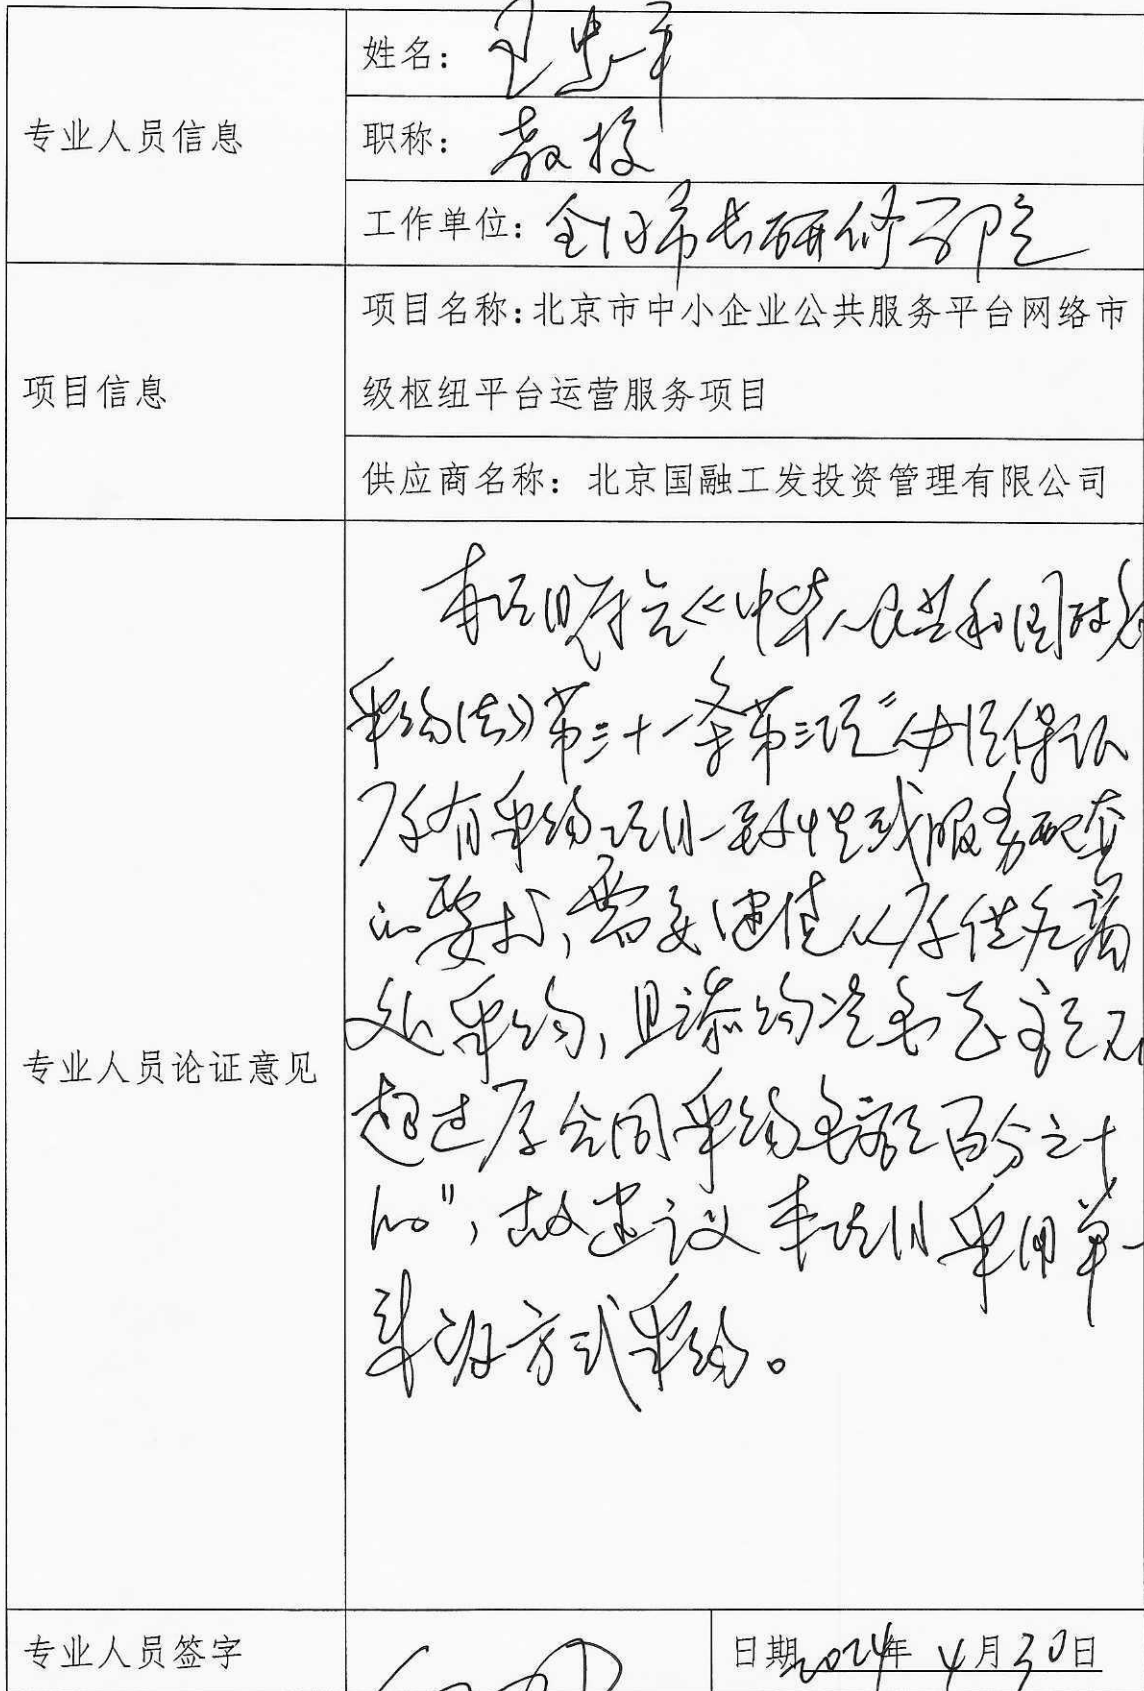 专业人员信息
姓名：王忠平
职称：教授
工作单位：全国市长研修学院
项目信息
项目名称：北京市中小企业公共服务平台网络市
级枢纽平台运营服务项目
供应商名称：北京国融工发投资管理有限公司
专业人员论证意见
本项目符合《中华人民共和国政府
采购法》第三十一条第三项“必须保证
原有采购项目一致性或服务配套
的要求，需要继续从原供应商
处采购，且添购资金总额不
超过原合同采购金额百分之十
的”，故建议本项目采用单一
来源方式采购。
专业人员签字
日期2024年4月30日